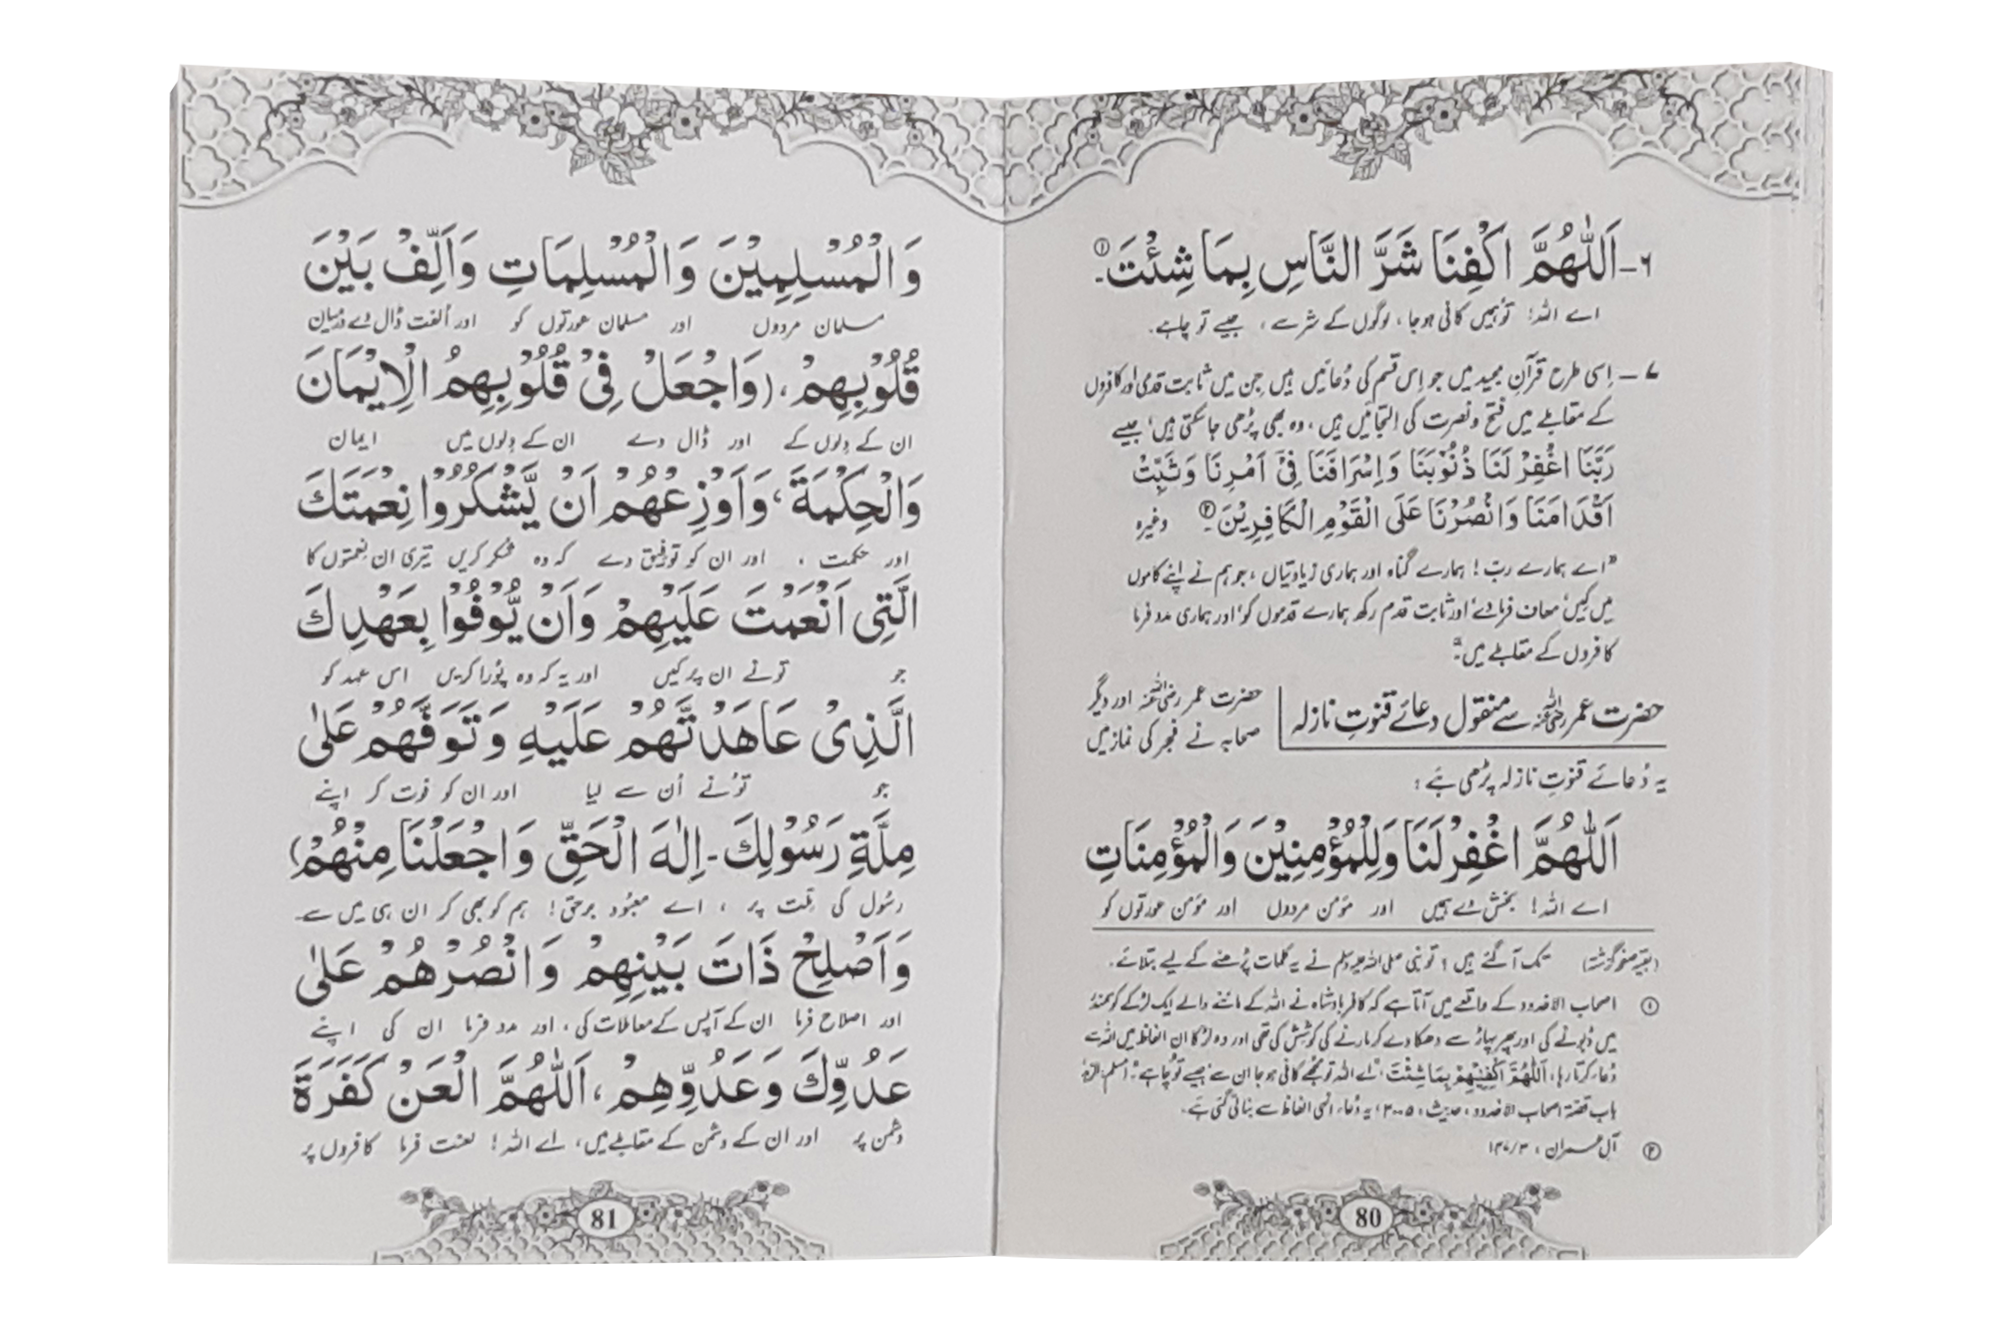 ۶۔ اَللّٰهُمَّ اكْفِنَا شَرَّ النَّاسِ بِمَا شِئْتَ۔ ①
اے اللہ! تو ہمیں کافی ہو جا، لوگوں کے شر سے، جیسے تو چاہے۔
۷۔ اِسی طرح قرآنِ مجید میں جو اِس قسم کی دُعائیں ہیں جن میں ثابت قدمی اور کافروں
کے مقابلے میں فتح و نصرت کی التجائیں ہیں، وہ بھی پڑھی جا سکتی ہیں، جیسے
رَبَّنَا اغْفِرْ لَنَا ذُنُوْبَنَا وَاِسْرَافَنَا فِيْٓ اَمْرِنَا وَثَبِّتْ
اَقْدَامَنَا وَانْصُرْنَا عَلَى الْقَوْمِ الْكَافِرِيْنَ۔ ② وغیرہ
"اے ہمارے ربّ! ہمارے گناہ اور ہماری زیادتیاں، جو ہم نے اپنے کاموں
میں کیں، معاف فرما دے، اور ثابت قدم رکھ ہمارے قدموں کو، اور ہماری مدد فرما
کافروں کے مقابلے میں۔"
حضرت عمر رضی اللہ عنہ سے منقول دعائے قنوتِ نازلہ
حضرت عمر رضی اللہ عنہ اور دیگر
صحابہ نے فجر کی نماز میں
یہ دُعائے قنوتِ نازلہ پڑھی ہَے:
اَللّٰهُمَّ اغْفِرْ لَنَا وَلِلْمُؤْمِنِيْنَ وَالْمُؤْمِنَاتِ
اے اللہ! بخش دے ہمیں اور مؤمن مردوں اور مؤمن عورتوں کو
(بقیہ صفحہ گزشتہ) تک آ گئے ہیں؟ تو نبی صلی اللہ علیہ وسلم نے یہ کلمات پڑھنے کے لیے بتلائے۔
① اصحاب الاخدود کے واقعے میں آتا ہے کہ کافر بادشاہ نے اللہ کے ماننے والے ایک لڑکے کو سمندر
میں ڈبونے کی اور پھر پہاڑ سے دھکا دے کر مارنے کی کوشش کی تھی اور وہ لڑکا ان الفاظ میں اللہ سے
دُعا کرتا رہا، اَللّٰهُمَّ اكْفِنِيْهِمْ بِمَا شِئْتَ، "اے اللہ تو مجھے کافی ہو جا ان سے، جیسے تو چاہے۔" (مسلم، الزہد
باب قصۃ اصحاب الاخدود، حدیث، ۳۰۰۵) یہ دُعاء انہی الفاظ سے بنائی گئی ہَے۔
② آلِ عمران، ۳/۱۴۷
80
وَالْمُسْلِمِيْنَ وَالْمُسْلِمَاتِ وَاَلِّفْ بَيْنَ
مسلمان مردوں اور مسلمان عورتوں کو اور اُلفت ڈال دے درمیان
قُلُوْبِهِمْ، (وَاجْعَلْ فِيْ قُلُوْبِهِمُ الْاِيْمَانَ
ان کے دِلوں کے اور ڈال دے ان کے دِلوں میں ایمان
وَالْحِكْمَةَ، وَاَوْزِعْهُمْ اَنْ يَّشْكُرُوْا نِعْمَتَكَ
اور حکمت، اور ان کو توفیق دے کہ وہ شکر کریں تیری ان نعمتوں کا
الَّتِيْ اَنْعَمْتَ عَلَيْهِمْ وَاَنْ يُّوْفُوْا بِعَهْدِكَ
جو تو نے ان پر کیں اور یہ کہ وہ پُورا کریں اس عہد کو
الَّذِيْ عَاهَدْتَّهُمْ عَلَيْهِ وَتَوَفَّهُمْ عَلٰى
جو توُ نے اُن سے لیا اور ان کو فوت کر اپنے
مِلَّةِ رَسُوْلِكَ۔ اِلٰهَ الْحَقِّ وَاجْعَلْنَا مِنْهُمْ)
رسُول کی مِلت پر، اے معبُود برحق! ہم کو بھی کر ان ہی میں سے۔
وَاَصْلِحْ ذَاتَ بَيْنِهِمْ وَانْصُرْهُمْ عَلٰى
اور اصلاح فرما ان کے آپس کے معاملات کی، اور مدد فرما ان کی اپنے
عَدُوِّكَ وَعَدُوِّهِمْ، اَللّٰهُمَّ الْعَنْ كَفَرَةَ
دشمن پر اور ان کے دشمن کے مقابلے میں، اے اللہ! لعنت فرما کافروں پر
81